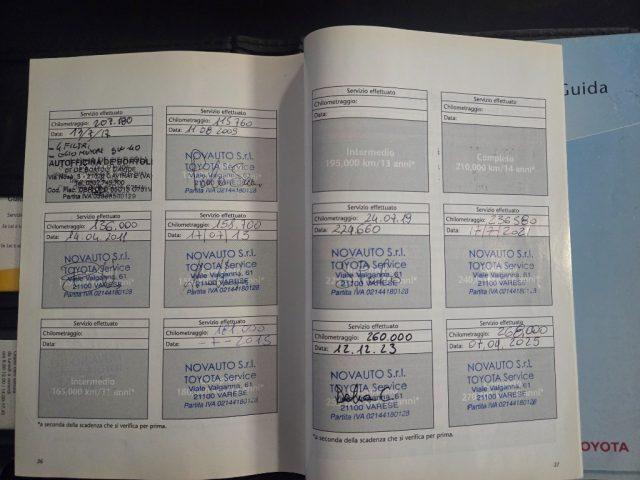 Servizio effettuato
Chilometraggio: 207.180
Data: 13/7/17
4 FILTRI
OLIO MOTORE 5W40
AUTOFFICINA DE BORTOLI
Servizio effettuato
Chilometraggio: 115760
Data: 11 08 2009
NOVAUTO S.r.l.
TOYOTA Service
Viale Valganna, 61
Partita IVA 02144180128
Servizio effettuato
Chilometraggio: 136,000
Data: 14.04.2011
NOVAUTO S.r.l.
TOYOTA Service
Viale Valganna, 61
21100 VARESE
Partita IVA 02144180128
Servizio effettuato
Chilometraggio: 151.700
Data: 17/07/13
NOVAUTO S.r.l.
TOYOTA Service
Viale Valganna, 61
21100 VARESE
Partita IVA 02144180128
Servizio effettuato
Chilometraggio:
Data:
Intermedio
165,000 km/11 anni*
Servizio effettuato
Chilometraggio: 181.000
Data: -7-2015
NOVAUTO S.r.l.
TOYOTA Service
Viale Valganna, 61
21100 VARESE
Partita IVA 02144180128
*a seconda della scadenza che si verifica per prima.
26
Servizio effettuato
Chilometraggio:
Data:
Intermedio
195,000 km/13 anni*
Servizio effettuato
Chilometraggio:
Data:
Completo
210,000 km/14 anni*
Servizio effettuato
Chilometraggio: 24.07.19
Data: 224660
NOVAUTO S.r.l.
TOYOTA Service
Viale Valganna, 61
21100 VARESE
Partita IVA 02144180128
Servizio effettuato
Chilometraggio: 236580
Data: 17/7/2021
NOVAUTO S.r.l.
TOYOTA Service
Viale Valganna, 61
21100 VARESE
Partita IVA 02144180128
Servizio effettuato
Chilometraggio: 260.000
Data: 12.12.23
NOVAUTO S.r.l.
TOYOTA Service
21100 VARESE
Partita IVA 02144180128
Servizio effettuato
Chilometraggio:
Data: 07.04.2025
NOVAUTO S.r.l.
TOYOTA Service
Viale Valganna, 61
21100 VARESE
Partita IVA 02144180128
*a seconda della scadenza che si verifica per prima.
27
Guida
OYOTA